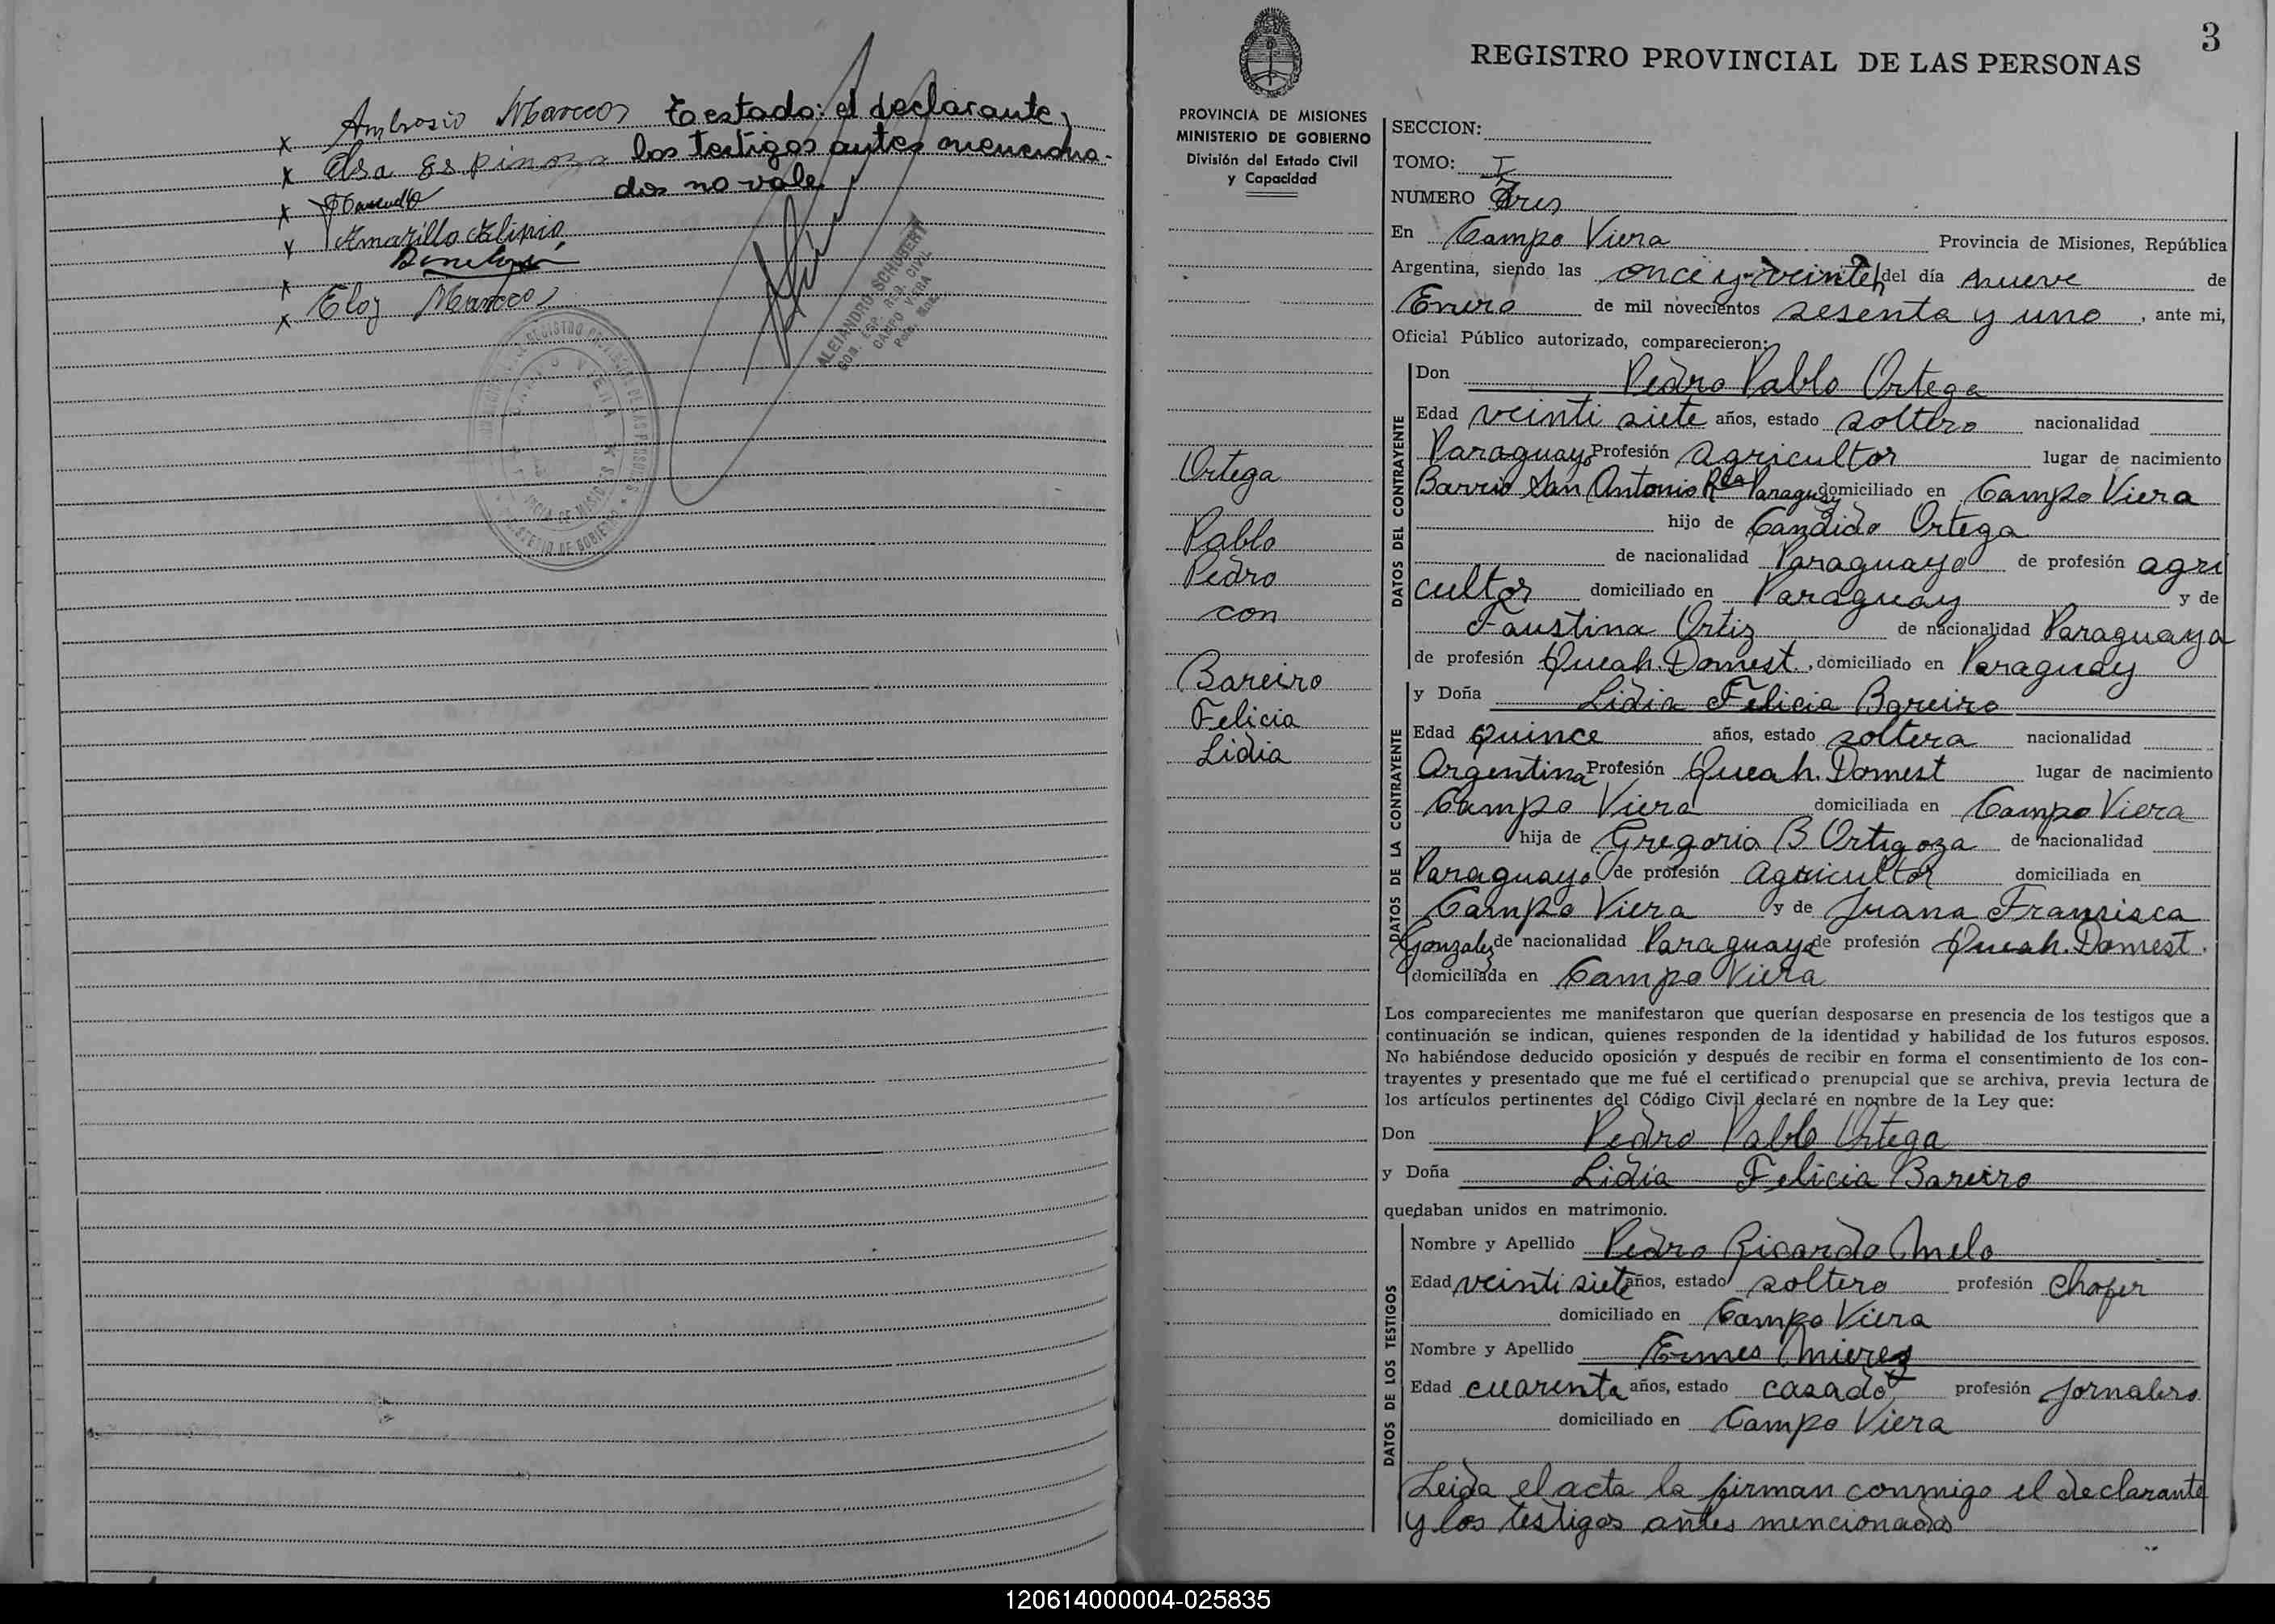 x Ambrosio Marcos Testado: el declarante y
x Elsa Espinoza los testigos antes menciona-
x dos no vale
x Amarillo
x
x Eloy Marcos
ALEJANDRO SCHUBERT
CAMPO VIERA
3
REGISTRO PROVINCIAL DE LAS PERSONAS
PROVINCIA DE MISIONES
MINISTERIO DE GOBIERNO
División del Estado Civil
y Capacidad
Ortega
Pablo
Pedro
con
Bareiro
Felicia
Lidia
SECCION:
TOMO: I
NUMERO Tres
En Campo Viera Provincia de Misiones, República
Argentina, siendo las once y veinte h del día nueve de
Enero de mil novecientos sesenta y uno, ante mi,
Oficial Público autorizado, comparecieron:
DATOS DEL CONTRAYENTE
Don Pedro Pablo Ortega
Edad veinti siete años, estado soltero nacionalidad
Paraguayo Profesión agricultor lugar de nacimiento
Barrio San Antonio Rca Paraguay domiciliado en Campo Viera
hijo de Candido Ortega
de nacionalidad Paraguayo de profesión agri
cultor domiciliado en Paraguay y de
Faustina Ortiz de nacionalidad Paraguaya
de profesión Queah. Domest., domiciliado en Paraguay
DATOS DE LA CONTRAYENTE
y Doña Lidia Felicia Bareiro
Edad quince años, estado soltera nacionalidad
Argentina Profesión Queah. Domest lugar de nacimiento
Campo Viera domiciliada en Campo Viera
hija de Gregorio B Ortigoza de nacionalidad
Paraguayo de profesión Agricultor domiciliada en
Campo Viera y de Juana Fransisca
Gonzalez de nacionalidad Paraguaya de profesión Queah. Domest.
domiciliada en Campo Viera
Los comparecientes me manifestaron que querían desposarse en presencia de los testigos que a
continuación se indican, quienes responden de la identidad y habilidad de los futuros esposos.
No habiéndose deducido oposición y después de recibir en forma el consentimiento de los con-
trayentes y presentado que me fué el certificado prenupcial que se archiva, previa lectura de
los artículos pertinentes del Código Civil declaré en nombre de la Ley que:
Don Pedro Pablo Ortega
y Doña Lidia Felicia Bareiro
quedaban unidos en matrimonio.
DATOS DE LOS TESTIGOS
Nombre y Apellido Pedro Ricardo Melo
Edad veinti siete años, estado soltero profesión chofer
domiciliado en Campo Viera
Nombre y Apellido Ermes Mierez
Edad cuarenta años, estado casado profesión Jornalero
domiciliado en Campo Viera
Leida el acta la firman conmigo el declarante
y los testigos antes mencionados
120614000004-025835